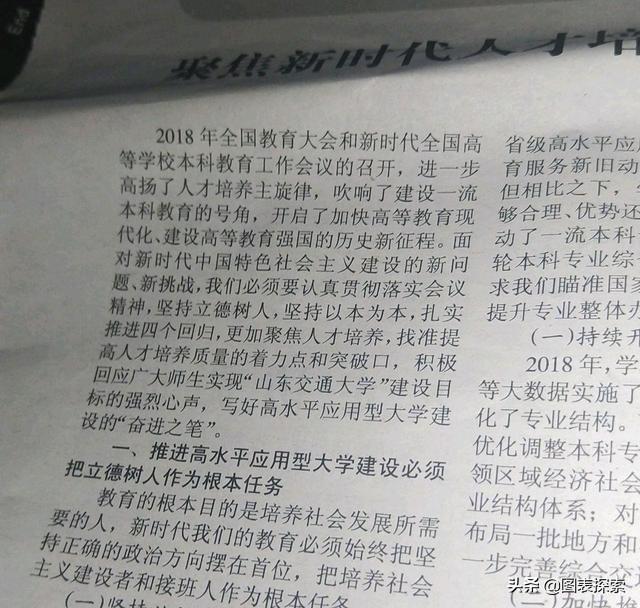 End
聚焦新时代人才培
2018年全国教育大会和新时代全国高
等学校本科教育工作会议的召开，进一步
高扬了人才培养主旋律，吹响了建设一流
本科教育的号角，开启了加快高等教育现
代化、建设高等教育强国的历史新征程。面
对新时代中国特色社会主义建设的新问
题、新挑战，我们必须要认真贯彻落实会议
精神，坚持立德树人，坚持以本为本，扎实
推进四个回归，更加聚焦人才培养，找准提
高人才培养质量的着力点和突破口，积极
回应广大师生实现“山东交通大学”建设目
标的强烈心声，写好高水平应用型大学建
设的“奋进之笔”。
一、推进高水平应用型大学建设必须
把立德树人作为根本任务
教育的根本目的是培养社会发展所需
要的人，新时代我们的教育必须始终把坚
持正确的政治方向摆在首位，把培养社会
主义建设者和接班人作为根本任务
(一)坚持
省级高水平应
育服务新旧动
但相比之下，
够合理、优势还
动了一流本科
轮本科专业综
求我们瞄准国家
提升专业整体办
(一)持续开
2018年，学
等大数据实施了
化了专业结构。
优化调整本科专
领区域经济社会
业结构体系；对
布局一批地方和
一步完善综合交通
(二)加快
头条 @图表探索